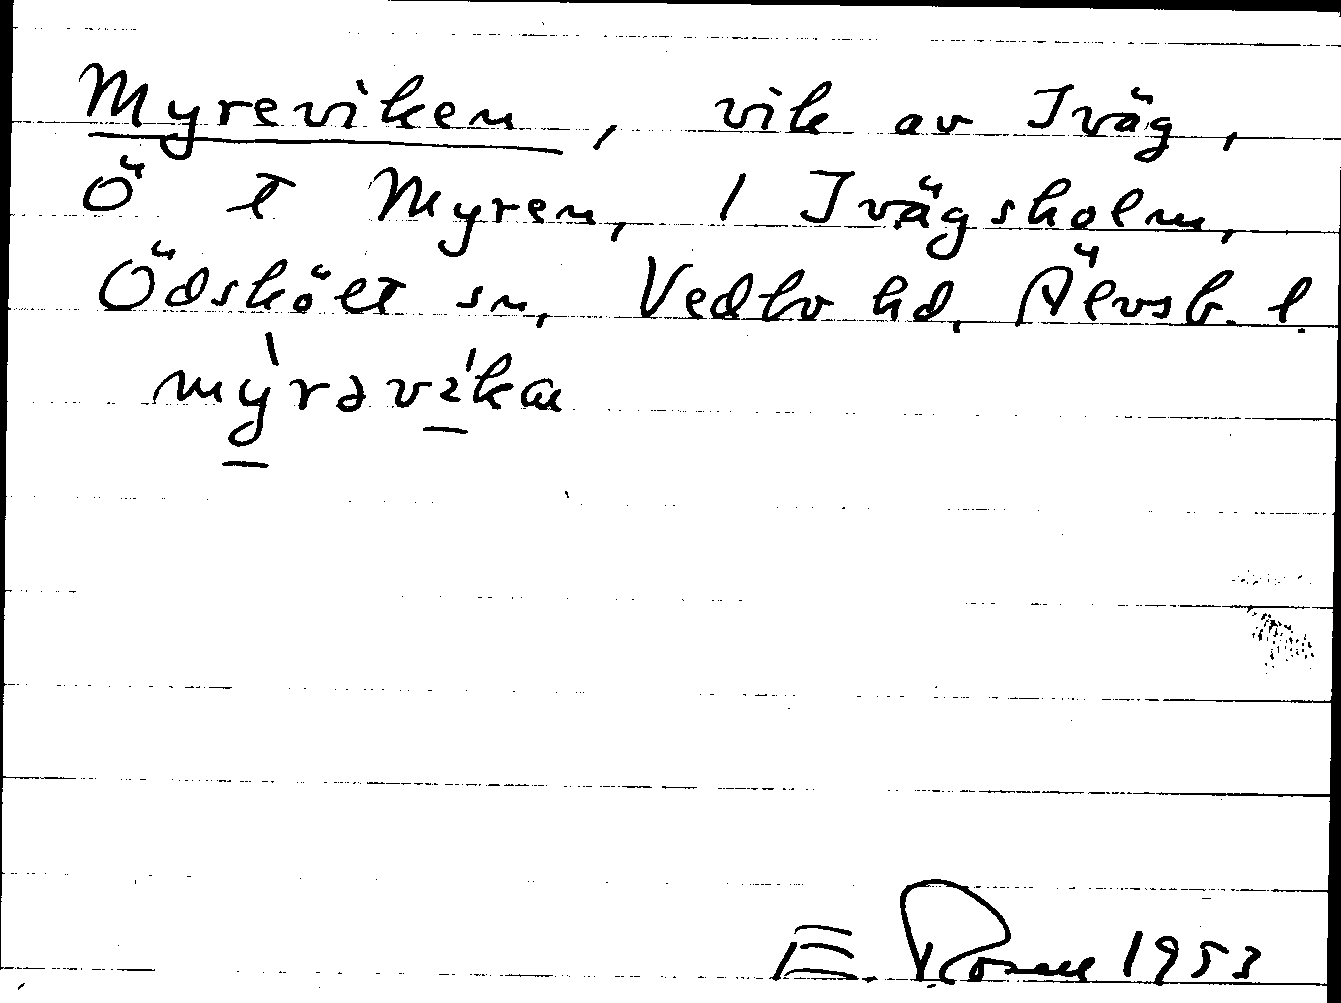 Myreviken, vik av Iväg,
Ö t Myren, 1 Ivägsholm,
Ödskölt sn, Vedbo hd, Älvsb. l.
mỳ̠rəví̠kən
E. Rosell 1953